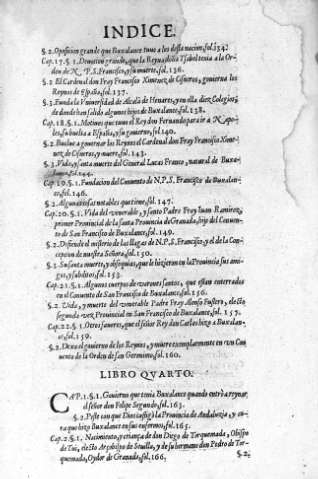 INDICE.
§.2. Oposicion grande que Buxalance tuuo a los desta nacion, fol.134.
Cap.17.§.1. Deuocion grande, que la Reyna doña Isabel tenia a la Orden
de N. P. S. Francisco, y su muerte, fol.136.
§.2 El Cardenal don Fray Francisco Ximenez de Cisneros, gouierna los
Reynos de España, fol.137.
§.3. Funda la Vniuersidad de Alcalà de Henares, y en ella diez Colegios,
de donde han salido algunos hijos de Buxalance, fol.138.
Cap.18.§.1. Motiuos que tuuo el Rey don Fernando para ir a Napoles,
su buelta a España, y su gouierno, fol.140.
§.2. Buelue a gouernar los Reynos el Cardenal don Fray Francisco Ximenez
de Cisneros, y muere, fol.143.
§.3. Vida, y santa muerte del General Lucas Franco, natural de Buxalance,
fol.144.
Cap.19.§.1. Fundacion del Conuento de N.P.S. Francisco de Buxalance,
fol.146.
§.2. Algunas cosas notables que tiene, fol.147.
Cap.20.§.1. Vida del venerable, y santo Padre Fray Iuan Ramirez,
primer Prouincial de la santa Prouincia de Granada, hijo del Conuento
de San Francisco de Buxalance, fol.149.
§.2. Defiende el misterio de las llagas de N.P.S. Francisco, y el de la Concepcion
de nuestra Señora, fol.150.
§.3. Su santa muerte, y obsequias, que le hizieron en la Prouincia sus amigos,
y subditos, fol.153.
Cap.21.§.1. Algunos cuerpos de varones santos, que estàn enterrados
en el Conuento de San Francisco de Buxalance, fol.156.
§.2. Vida, y muerte del venerable Padre Fray Alonso Fustero, electo
segunda vez Prouincial en San Francisco de Buxalance, fol. 157.
Cap.22.§.1. Otros fauores, que el señor Rey don Carlos hizo a Buxalance,
fol.159.
§.2. Dexa el gouierno de los Reynos, y muere exemplarmente en vn Conuento
de la Orden de san Geronimo, fol.160.
LIBRO QVARTO.
CAP.1.§.1. Gouierno que tenia Buxalance quando entrò a reynar
el señor don Felipe Segundo, fol.163.
§.2. Peste con que Dios castigò la Prouincia de Andaluzia, y cura
que hizo Buxalance en sus enfermos, fol.165.
Cap.2.§.1. Nacimiento, y criança de don Diego de Torquemada, Obispo
de Tui, electo Arçobispo de Seuilla, y de su hermano don Pedro de Torquemada,
Oydor de Granada, fol.166.
§.2.